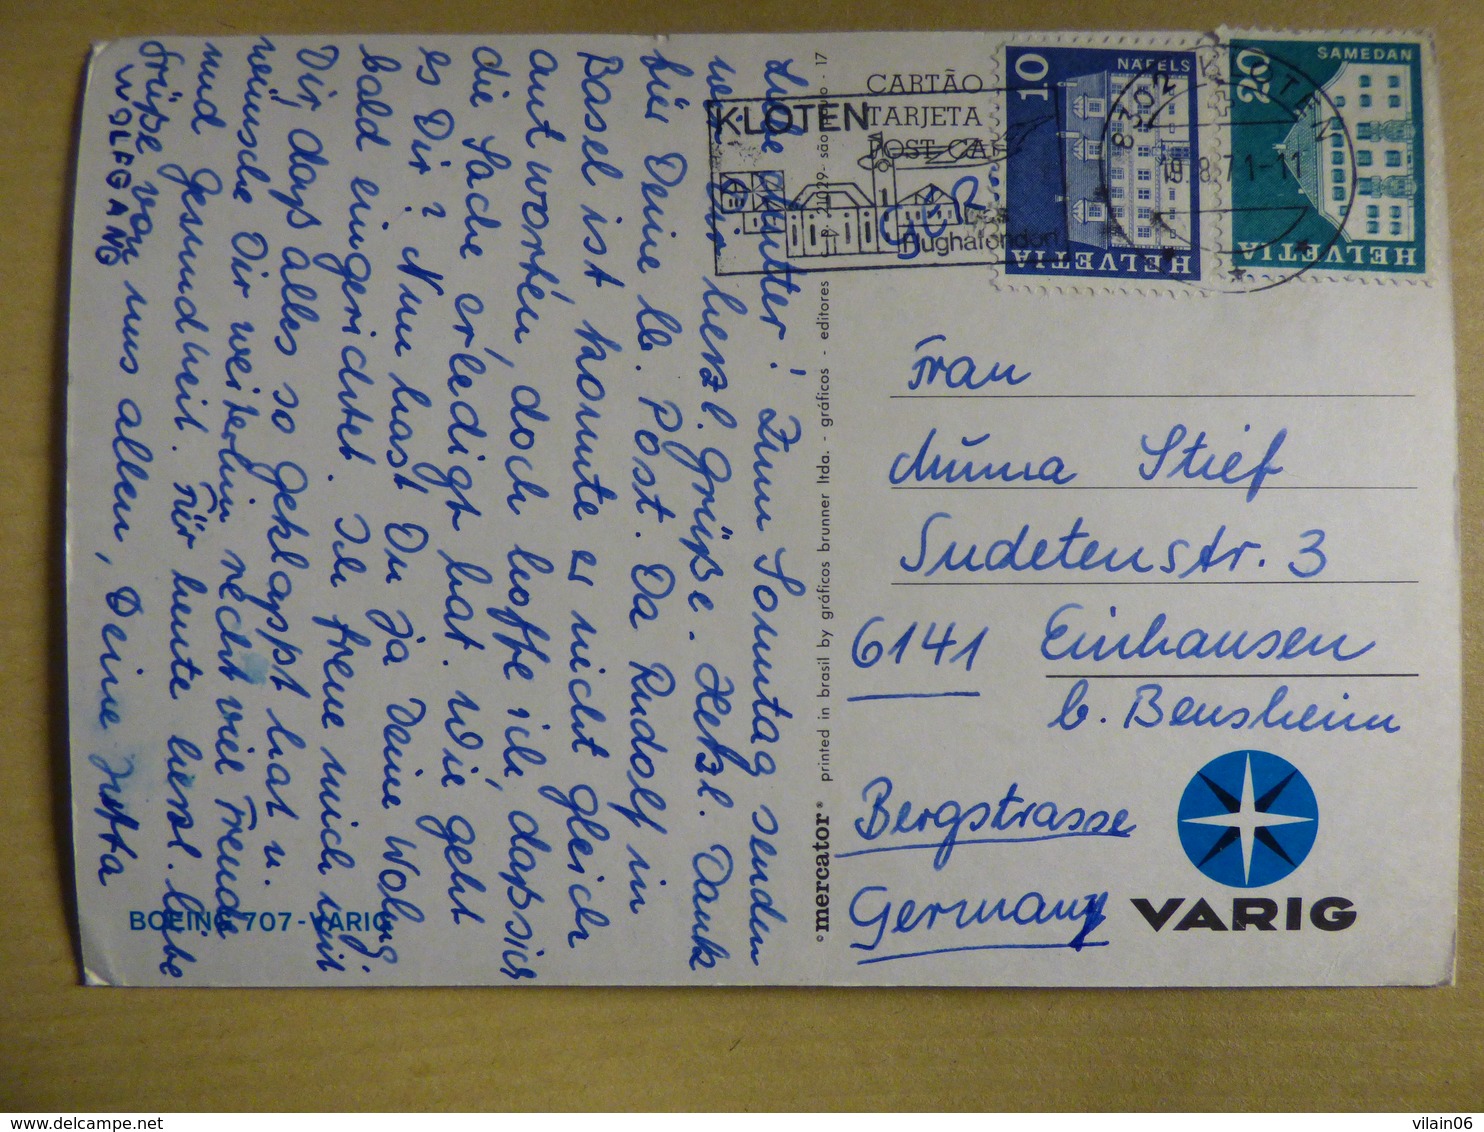 Liebe Mutter! Zum Sonntag senden
wir Dir herzl. Grüße. Herzl. Dank
für Deine lb. Post. Da Rudolf in
Basel ist konnte er nicht gleich
antworten, doch hoffe ich, daß sich
die Sache erledigt hat. Wie geht
es Dir? Nun hast Du ja Deine Wohng.
bald eingerichtet. Ich freue mich mit
Dir, daß alles so geklappt hat u.
wünsche Dir weiterhin recht viel Freude
und Gesundheit. Für heute herzl. liebe
Grüße von uns allen, Deine Jutta
WOLFGANG
BOEING 707-VARIG
°mercator® printed in brasil by gráficos brunner ltda. - gráficos - editores
17
CARTÃO
TARJETA
POST CARD
KLOTEN
Flughafendorf
10
NÄFELS
HELVETIA
20
SAMEDAN
HELVETIA
8302 KLOTEN
19.8.71-11
Frau
Anna Stief
Sudetenstr. 3
6141 Einhausen
b. Bensheim
Bergstrasse
Germany
VARIG
https://www.delcampe.net
vilain06